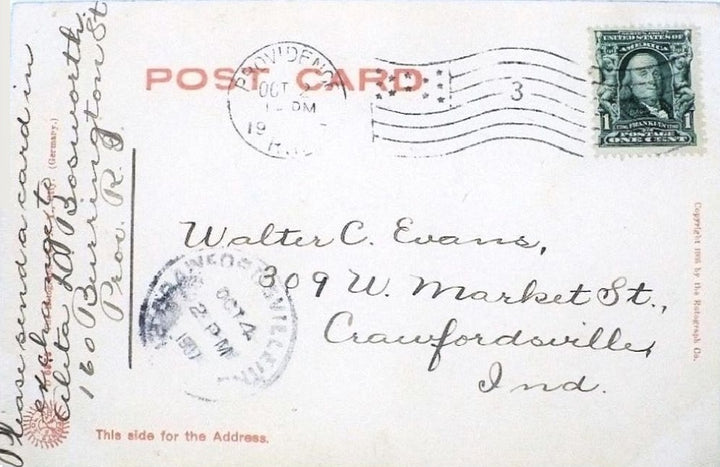 POST CARD
PROVIDENCE
OCT 2
PM
19
R.I.
3
SERIES 1902
UNITED STATES OF
AMERICA
1 FRANKLIN 1
POSTAGE
ONE CENT
Please send a card in
exchange to
Aleta D. Bosworth.
160 Burrington St
Prov. R. I.
(Germany.)
Walter C. Evans,
309 W. Market St.,
Crawfordsville,
Ind.
CRAWFORDSVILLE
OCT 4
2 PM
1907
Copyright 1905 by the Rotograph Co.
This side for the Address.